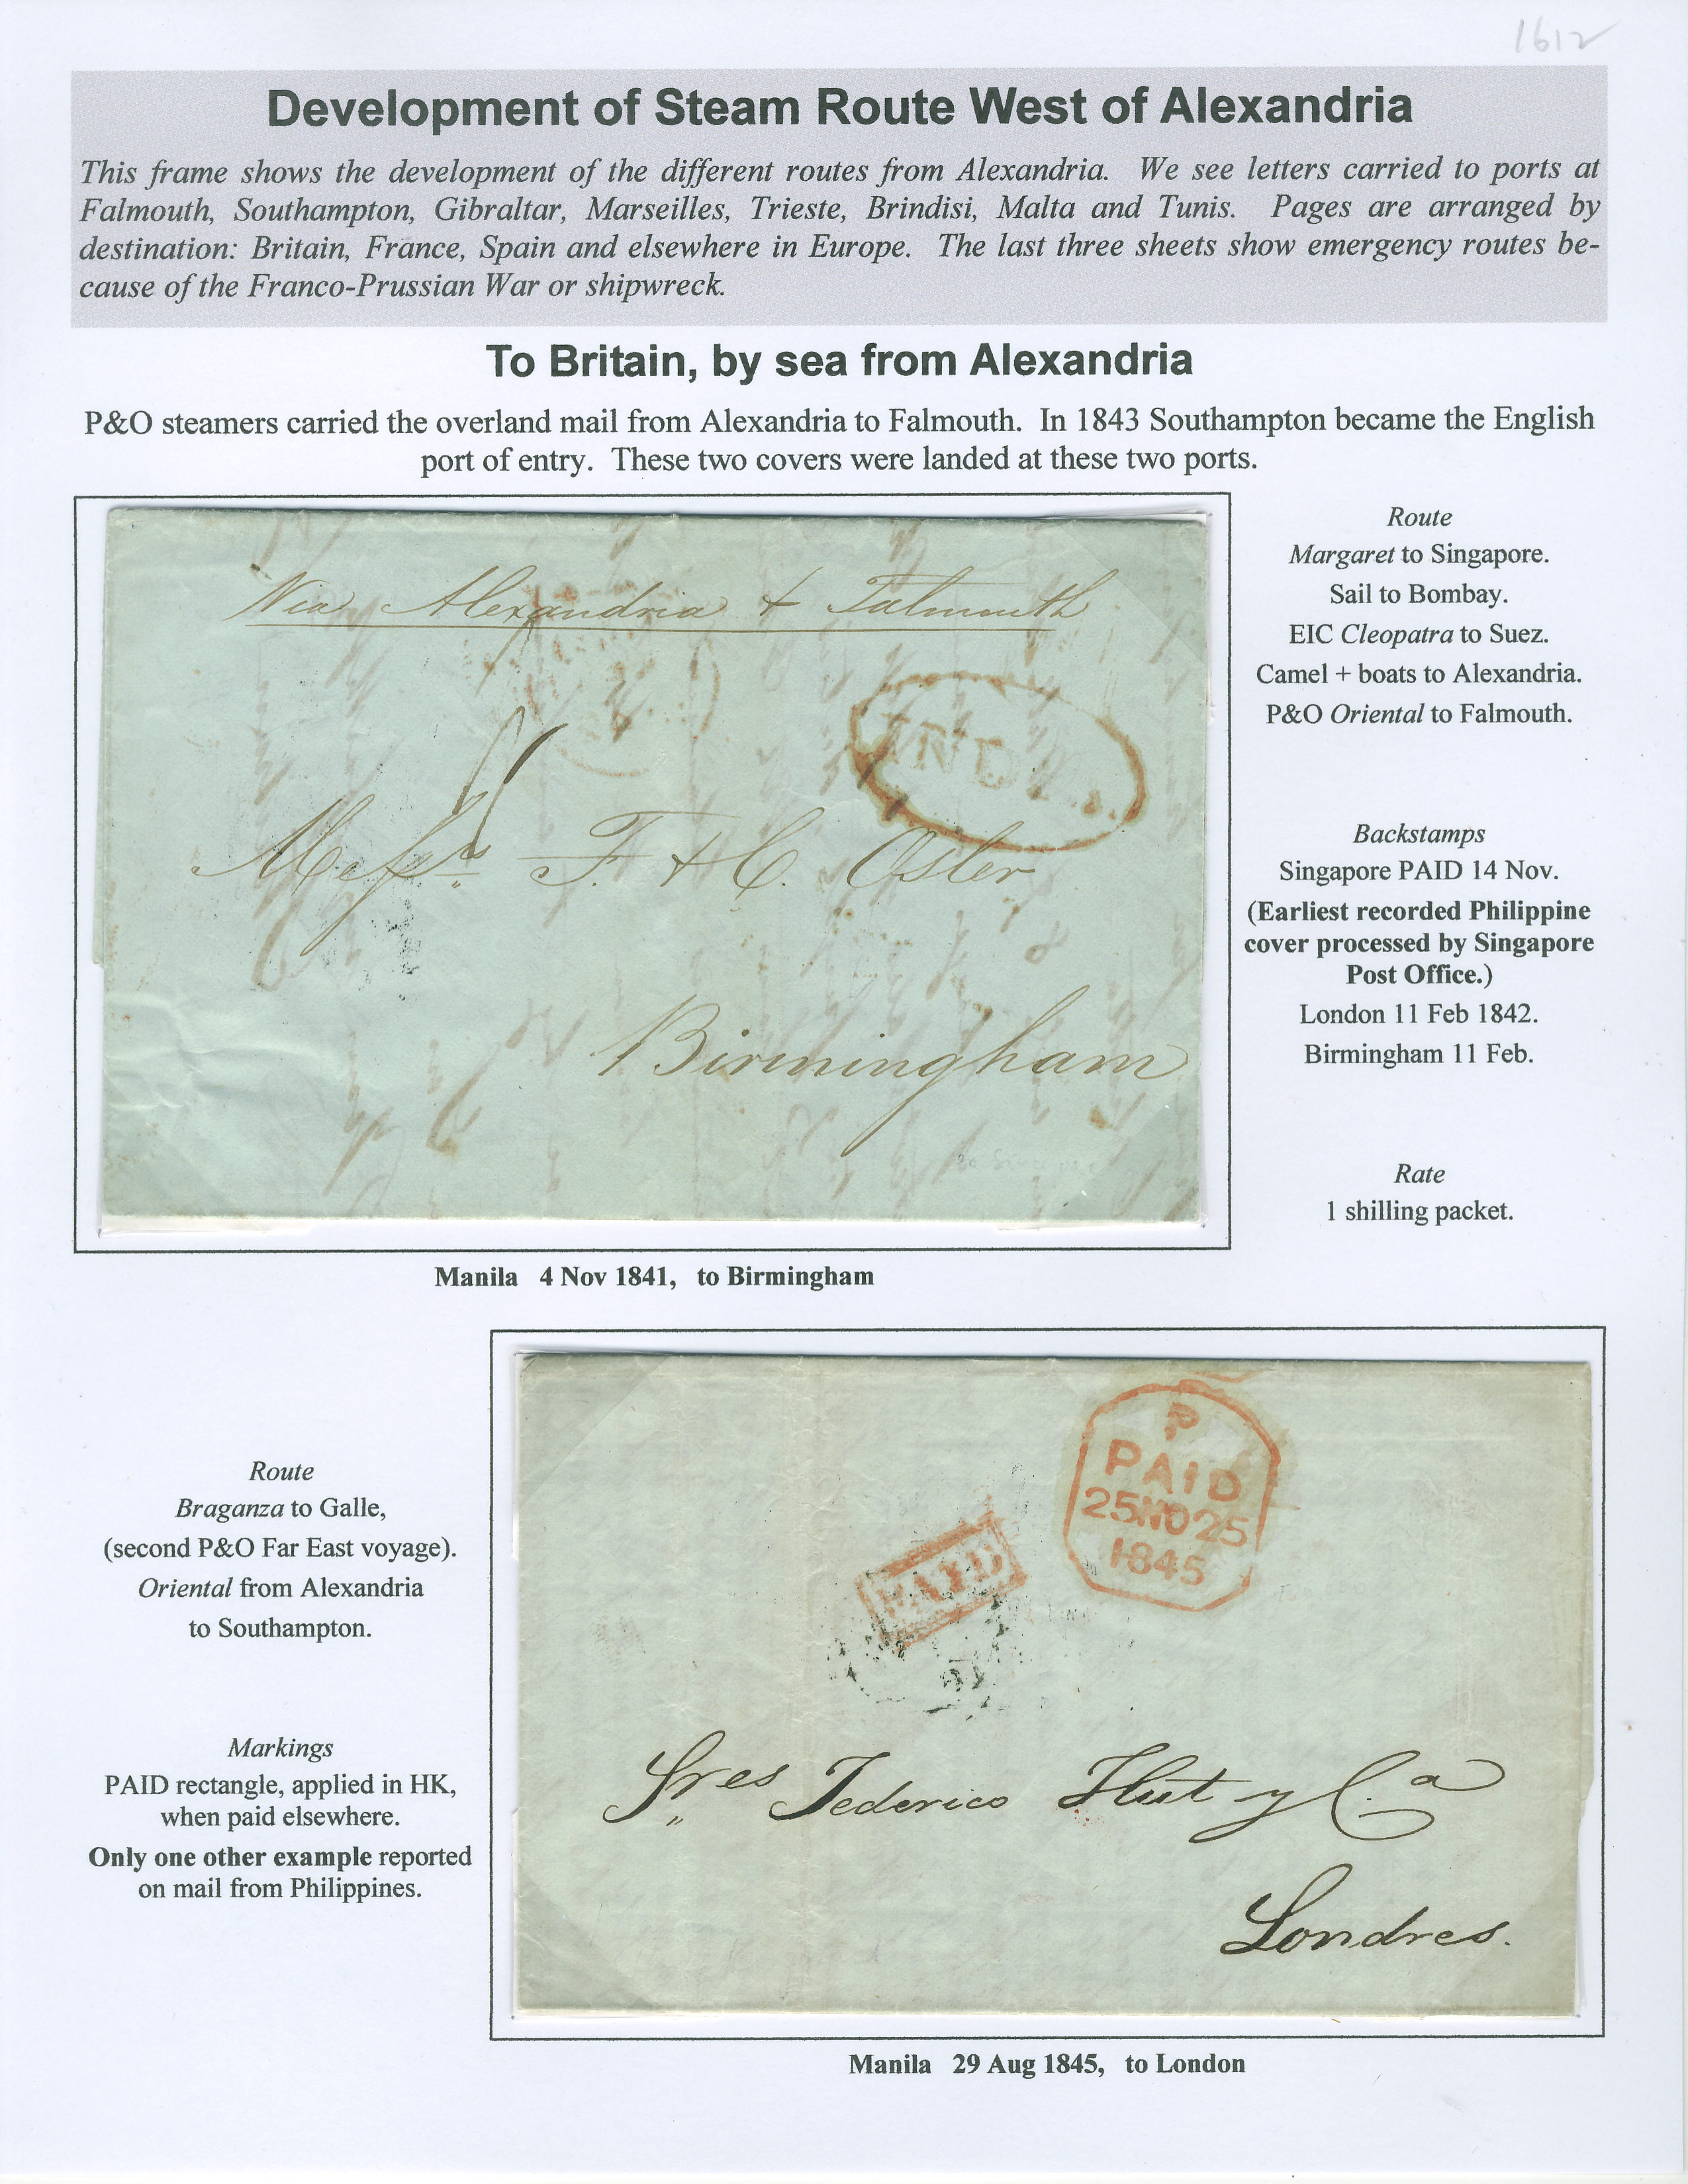 1612
Development of Steam Route West of Alexandria
This frame shows the development of the different routes from Alexandria. We see letters carried to ports at
Falmouth, Southampton, Gibraltar, Marseilles, Trieste, Brindisi, Malta and Tunis. Pages are arranged by
destination: Britain, France, Spain and elsewhere in Europe. The last three sheets show emergency routes be-
cause of the Franco-Prussian War or shipwreck.
To Britain, by sea from Alexandria
P&O steamers carried the overland mail from Alexandria to Falmouth. In 1843 Southampton became the English
port of entry. These two covers were landed at these two ports.
Via Alexandria & Falmouth
INDIA
Messrs F. & C. Osler
Birmingham
Route
Margaret to Singapore.
Sail to Bombay.
EIC Cleopatra to Suez.
Camel + boats to Alexandria.
P&O Oriental to Falmouth.
Backstamps
Singapore PAID 14 Nov.
(Earliest recorded Philippine
cover processed by Singapore
Post Office.)
London 11 Feb 1842.
Birmingham 11 Feb.
Rate
1 shilling packet.
Manila 4 Nov 1841, to Birmingham
Route
Braganza to Galle,
(second P&O Far East voyage).
Oriental from Alexandria
to Southampton.
Markings
PAID rectangle, applied in HK,
when paid elsewhere.
Only one other example reported
on mail from Philippines.
P
PAID
25NO25
1845
PAID
Sres Federico Hut y Ca
Londres.
Manila 29 Aug 1845, to London